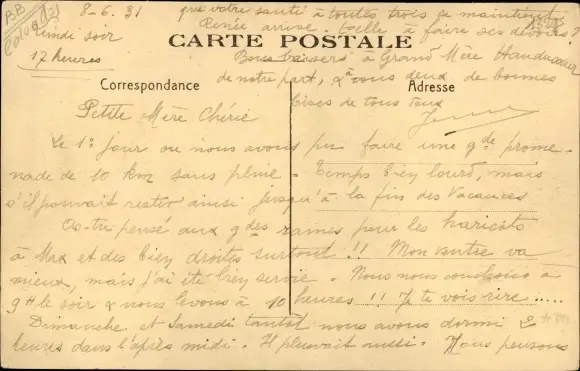 8-6.31
Lundi soir
17 heures
que votre santé à toutes trois se maintient
Renée arrive-t-elle à faire ses devoirs ?
CARTE POSTALE
Bons baisers à Grand' Mère
de notre part, & à vous deux de bonnes
bises de tous deux
Correspondance
Adresse
Petite Mère Chérie
Le 1er jour ou nous avons pu faire une gde prome-
nade de 10 km sans pluie - Temps bien lourd, mais
s'il pouvait rester ainsi jusqu'à la fin des Vacances
As-tu pensé aux gdes rames pour les haricots
à Max et des bien droites surtout !! Mon ventre va
mieux, mais j'ai été bien servie. Nous nous couchons à
9 H le soir & nous levons à 10 heures !! Je te vois rire.....
Dimanche et Samedi tantôt nous avons dormi 2
heures dans l'après midi. Il pleuvait aussi. Nous pensons